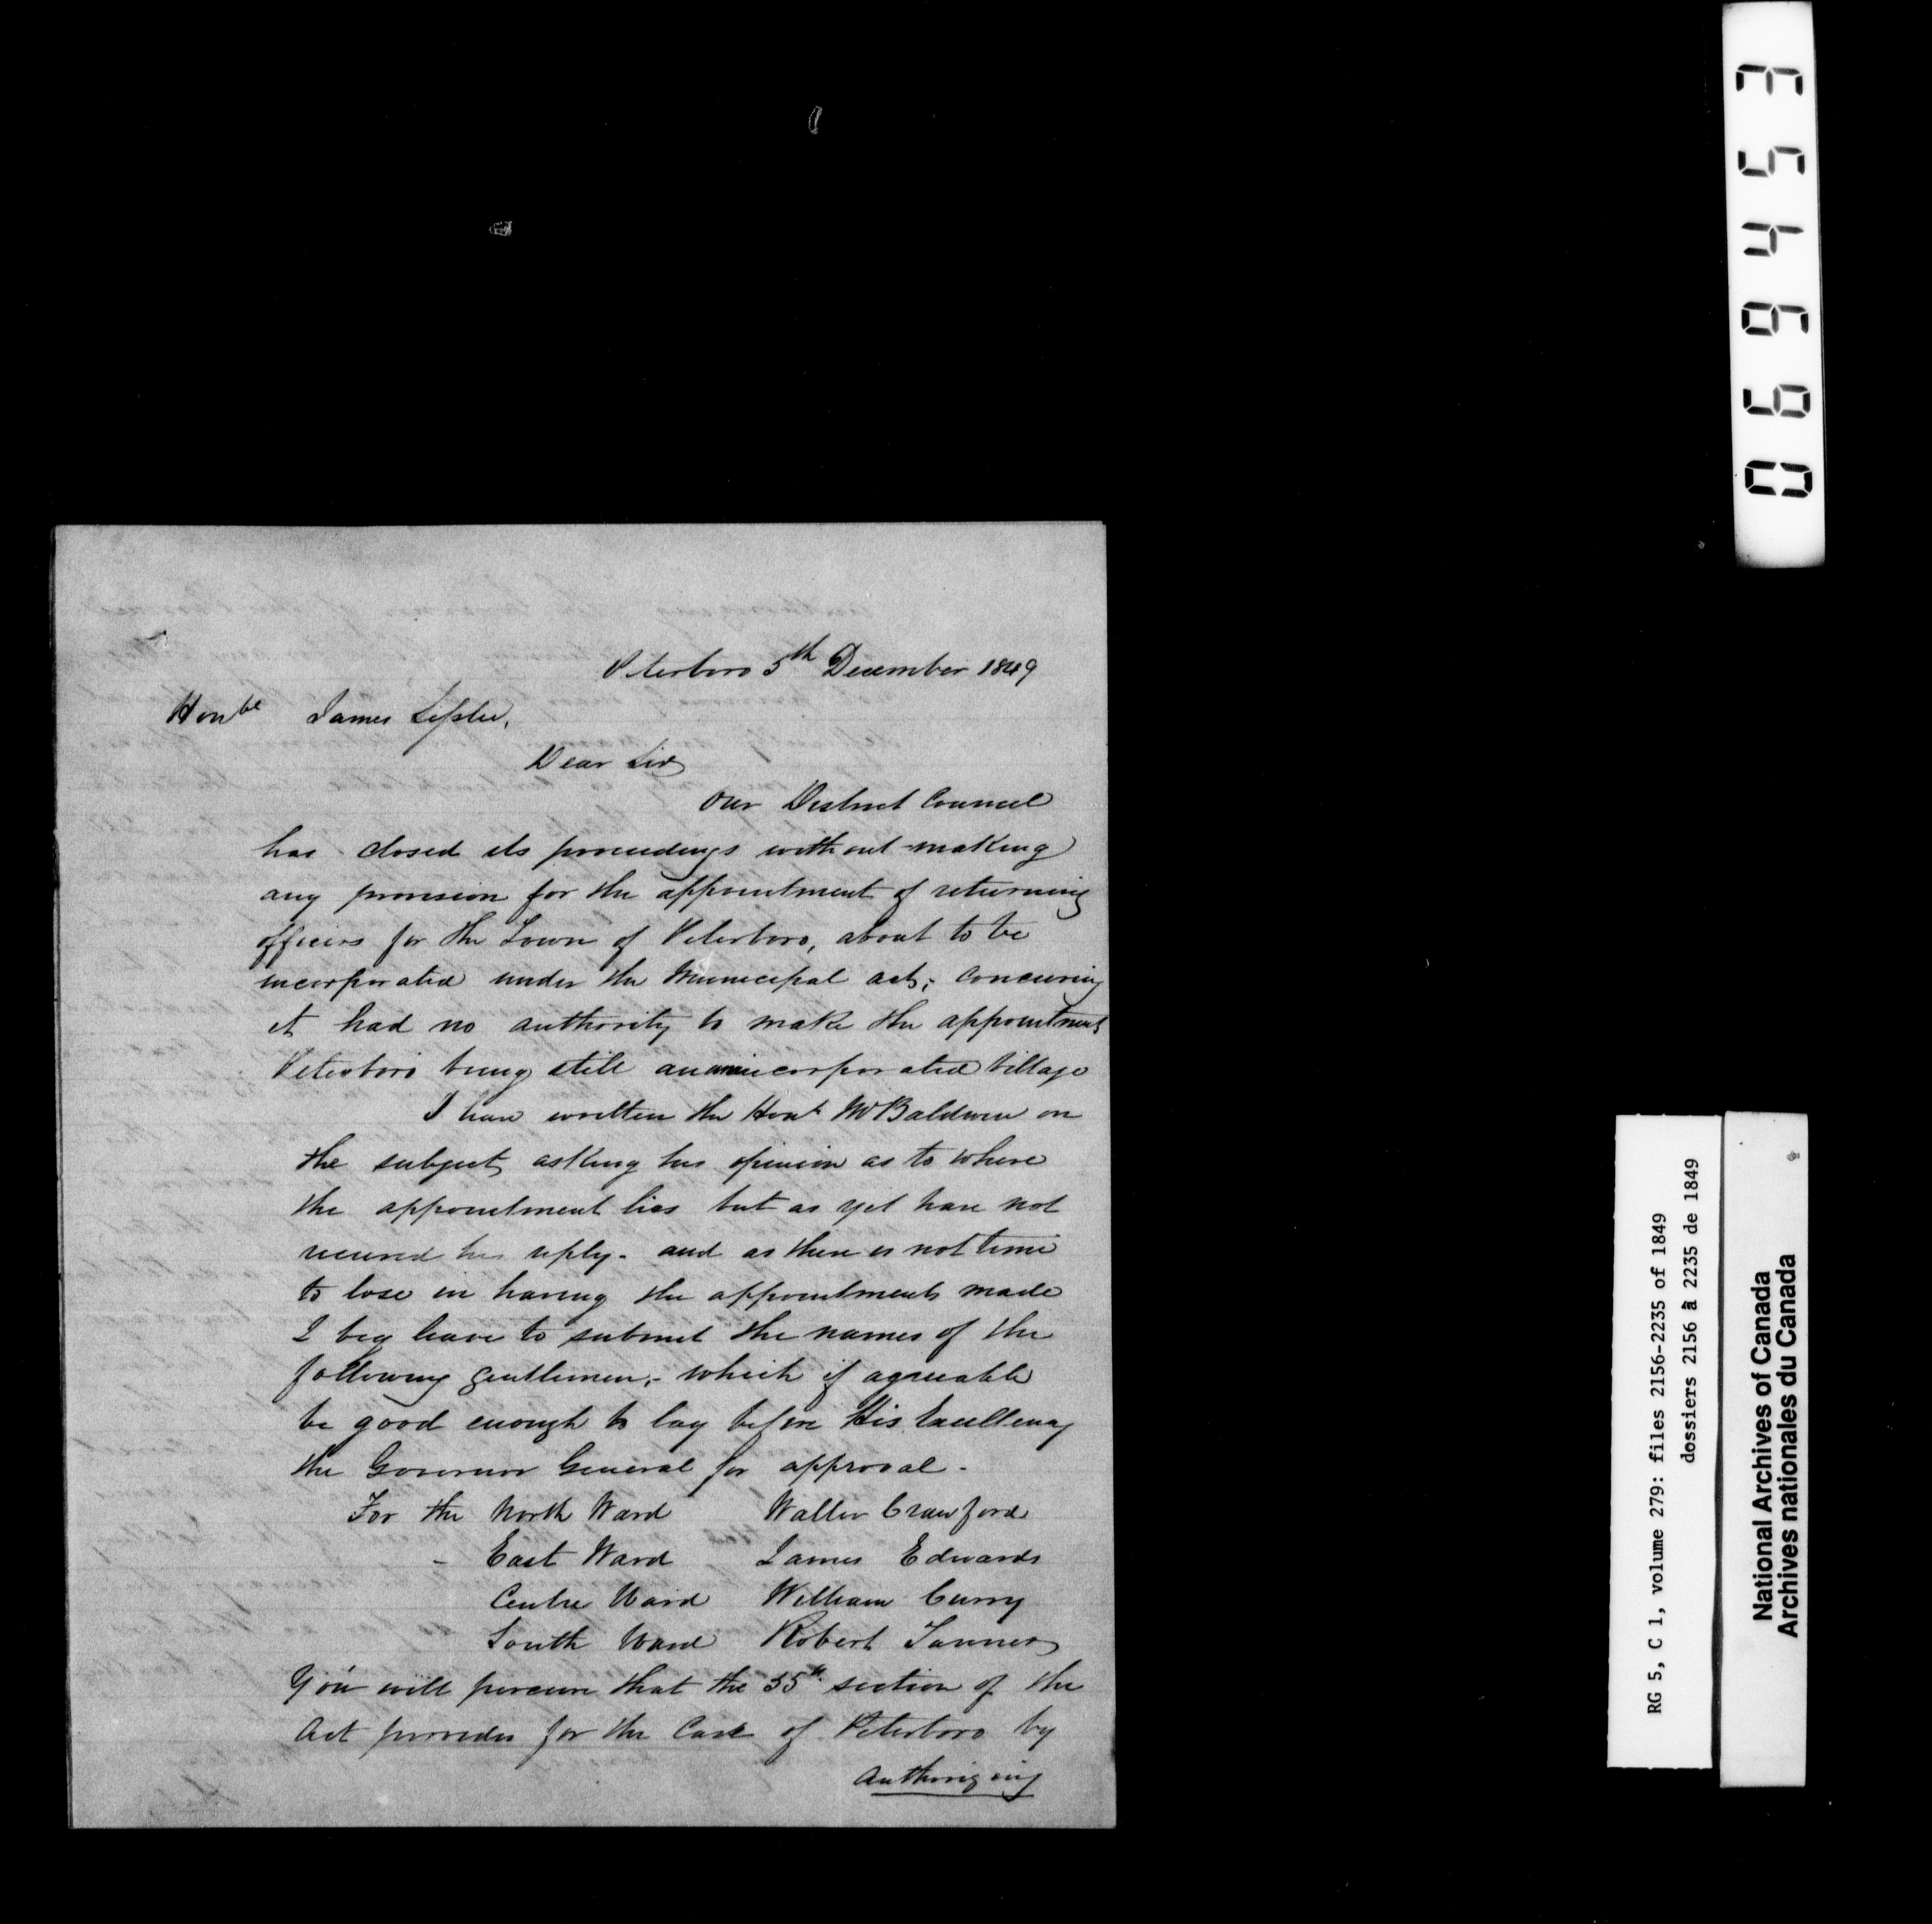 Peterboro 5th December 1849
Honble James Leslie,
Dear Sir
Our District Council
has closed its proceedings without making
any provision for the appointment of returning
officers for the Town of Peterboro, about to be
incorporated under the Municipal act; conceiving
it had no authority to make the appointment
Peterboro being still an unincorporated Village
I have written the Honl. Mr Baldwin on
the subject asking his opinion as to where
the appointment lies but as yet have not
received his reply - and as there is not time
to lose in having the appointments made
I beg leave to submit the names of the
following gentlemen, - which if agreeable
be good enough to lay before His Excellency
the Governor General for approval -
For the North Ward Walter Crawford
- East Ward James Edwards
Centre Ward William Curry
South Ward Robert Tanner
You will perceive that the 55th section of the
Act provides for the Case of Peterboro by
Authorizing
069453
RG 5, C 1, volume 279: files 2156-2235 of 1849
dossiers 2156 à 2235 de 1849
National Archives of Canada
Archives nationales du Canada